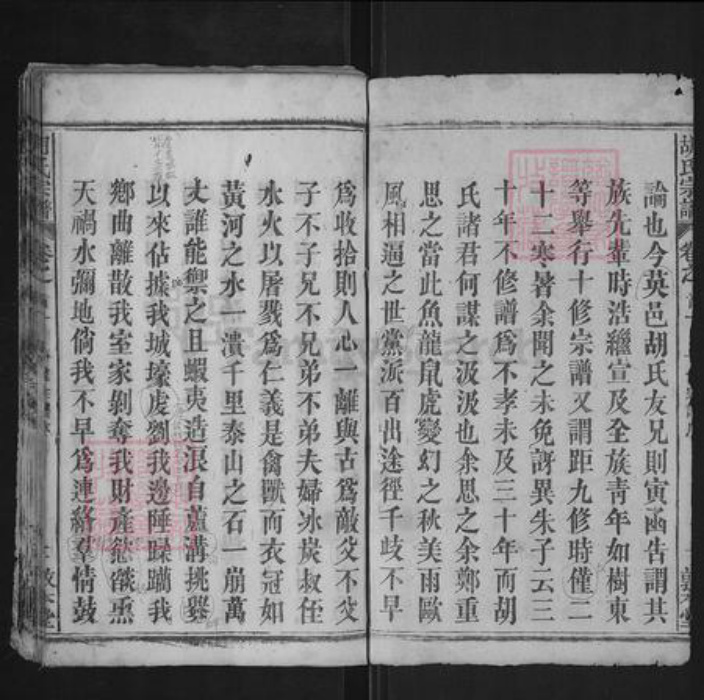 論也今英邑胡氏友兄則寅函告謂其
族先輩時浩繼宣及全族青年如樹東
等舉行十修宗譜又謂距九修時僅二
十二寒暑余聞之未免訝異朱子云三
十年不修譜爲不孝未及三十年而胡
氏諸君何謀之汲汲也余思之余鄭重
思之當此魚龍鼠虎變幻之秋美雨歐
風相逼之世黨派百出途徑千歧不早
爲收拾則人心一離與古爲敵父不父
子不子兄不兄弟不弟夫婦冰炭叔侄
水火以屠戮爲仁義是禽獸而衣冠如
黃河之水一潰千里泰山之石一崩萬
丈誰能禦之且蝦夷造浪自蘆溝挑釁
以來佔據我城壕虔劉我邊陲蹂躪我
鄉曲離散我室家剝奪我財產
天禍水彌地倘我不早爲連絡羣情鼓
胡氏宗譜